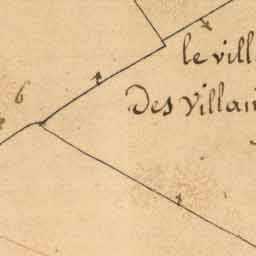 le vill
Des Villai
6